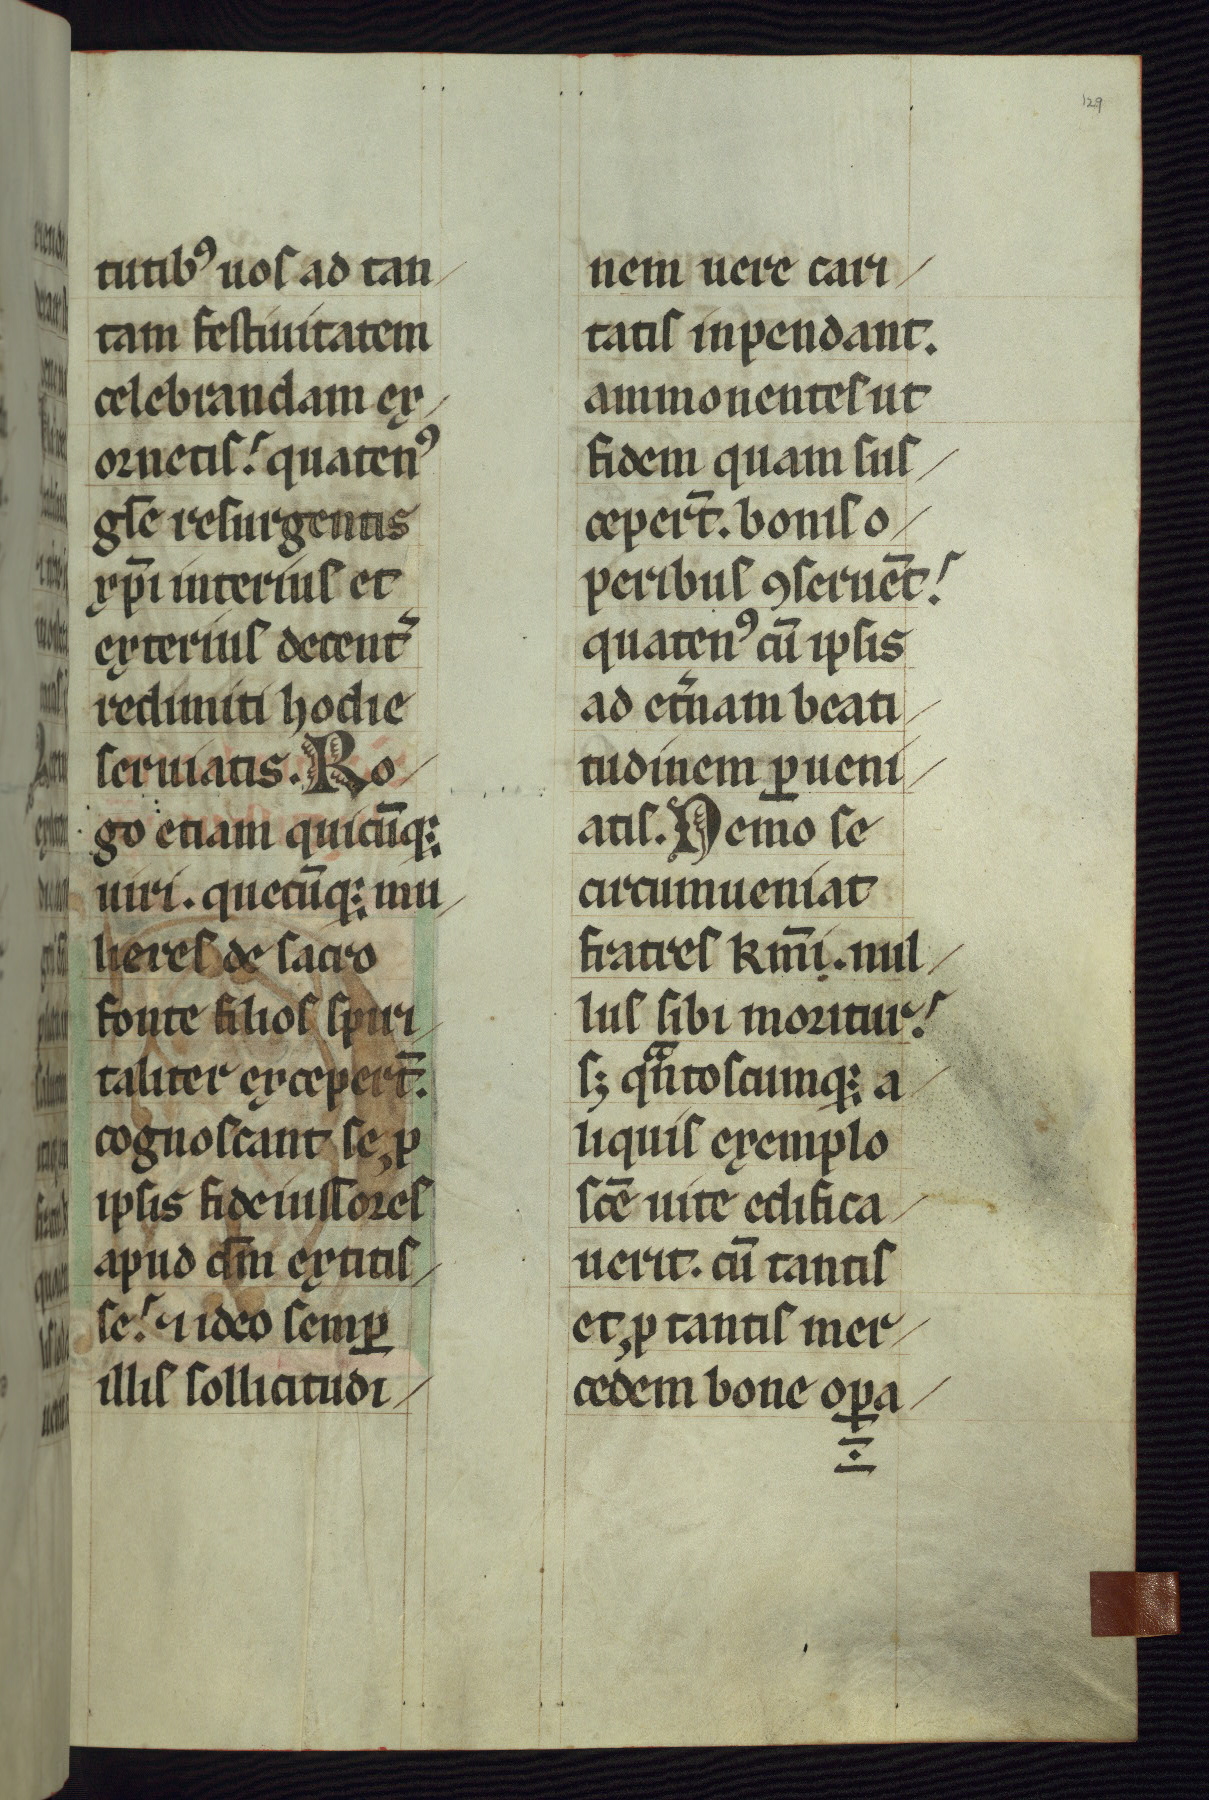 129
tutibꝰ uos ad tan
tam festiuitatem
celebrandam ex
ornetis. quatenꝰ
gl̄e resurgentis
xp̄i interius et
exterius decent᷑
redimiti hodie
seruiatis. Ro
go etiam quicūq;
uiri. quecūq; mu
lieres de sacro
fonte filios spiri
taliter exceper̄t.
cognoscant se, ꝓ
ipsis fideiussores
apud dm̄ extitis
se. ⁊ ideo semꝑ
illis sollicitudi
nem uere cari
tatis inpendant.
ammonentes ut
fidem quam sus
ceper̄t. bonis o
peribus ꝯseruēt.
quatenꝰ cū ipsis
ad et᷑nam beati
tudinem ꝑueni
atis. Nemo se
circumueniat
fratres km̄i. nul
lus sibi moritur.
sꝫ qͣntoscumq; a
liquis exemplo
scē uite edifica
uerit. cū tantis
et ꝓ tantis mer
cedem bone oꝑa